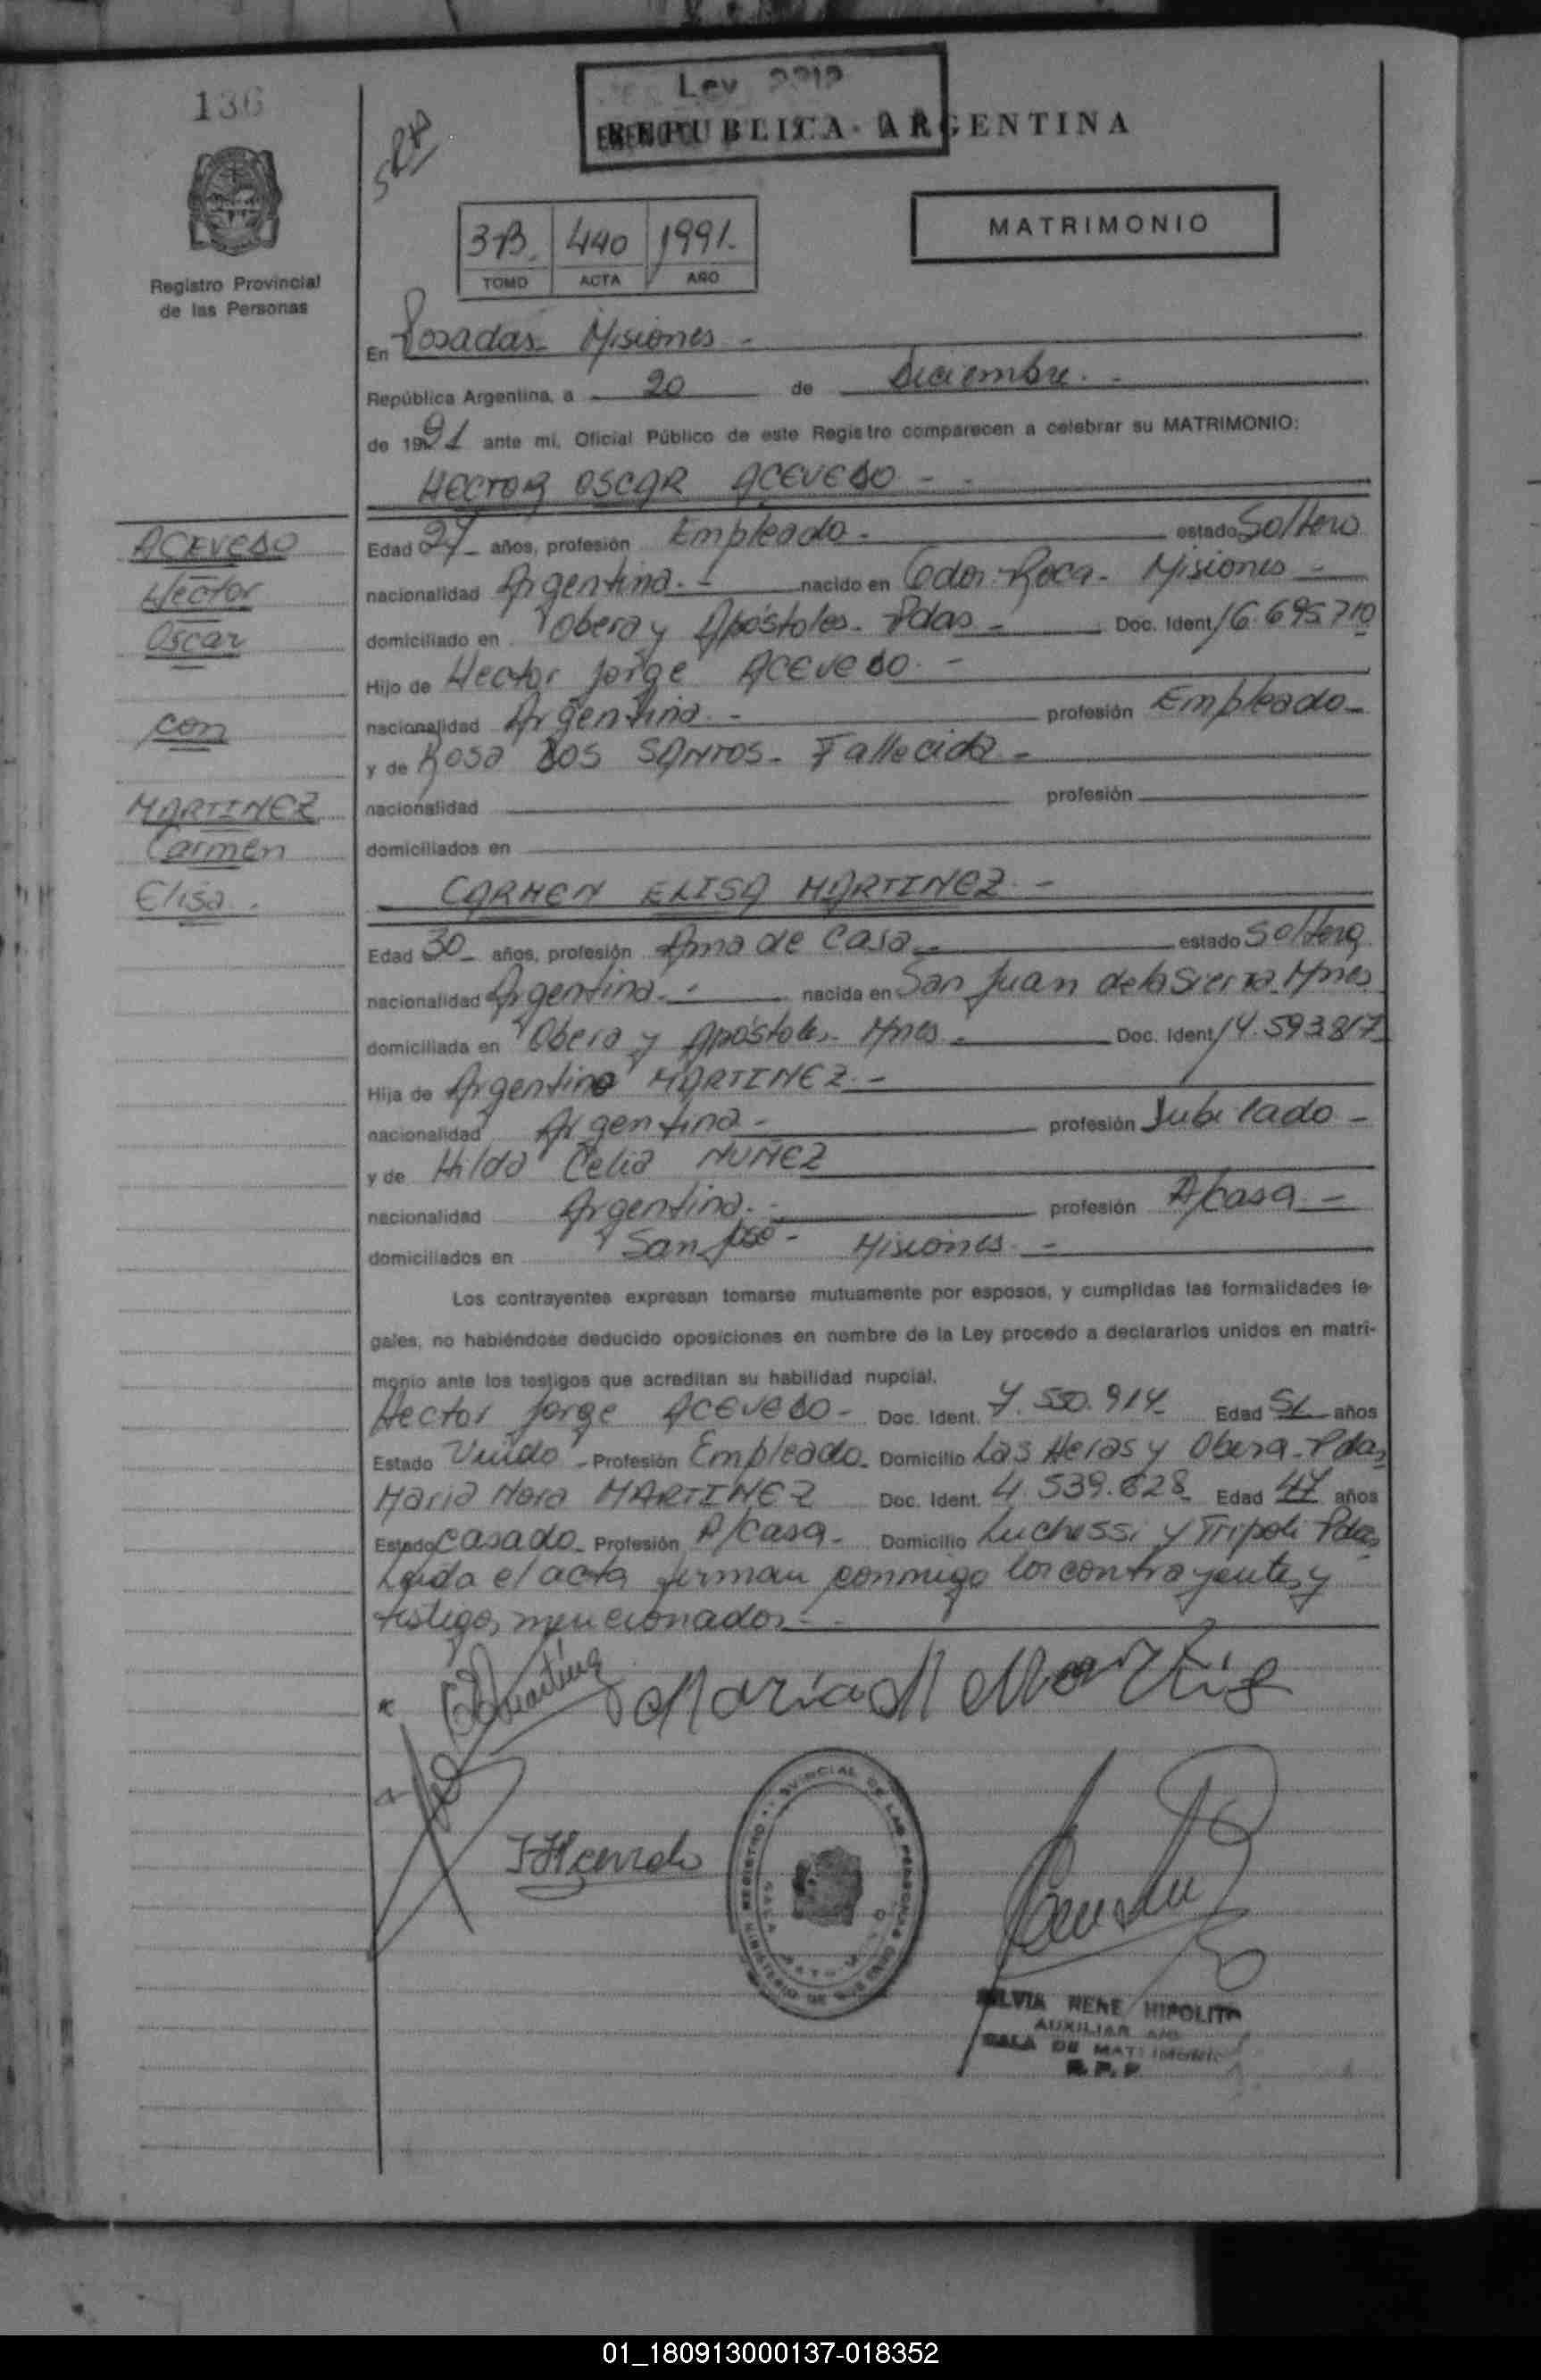 136
Ley 2212
REPUBLICA ARGENTINA
Registro Provincial
de las Personas
3-B. 440 1991.
TOMO ACTA AÑO
MATRIMONIO
En Posadas Misiones -
República Argentina, a 20 de Diciembre. -
de 1991 ante mi, Oficial Público de este Registro comparecen a celebrar su MATRIMONIO:
HECTOR OSCAR ACEVEDO - -
ACEVEDO
Hector
Oscar
con
MARTINEZ
Carmen
Elisa.
Edad 27- años, profesión Empleado - estado Soltero
nacionalidad Argentina. - nacido en Gdor. Roca - Misiones -
domiciliado en Obera y Apóstoles - Pdas - Doc. Ident. 16.695.710
Hijo de Hector Jorge ACEVEDO. -
nacionalidad Argentina - profesión Empleado -
y de Rosa DOS SANTOS - Fallecida -
nacionalidad profesión
domiciliados en
- CARMEN ELISA MARTINEZ -
Edad 30 - años, profesión Ama de Casa - estado Soltera
nacionalidad Argentina. - nacida en San Juan de la Sierra Mnes
domiciliada en Obera y Apóstoles - Mnes - Doc. Ident. 14.593.817
Hija de Argentino MARTINEZ -
nacionalidad Argentina - profesión Jubilado -
y de Hilda Celia NUÑEZ
nacionalidad Argentina. - profesión A/casa -
domiciliados en San José - Misiones -
Los contrayentes expresan tomarse mutuamente por esposos, y cumplidas las formalidades le-
gales, no habiéndose deducido oposiciones en nombre de la Ley procedo a declararlos unidos en matri-
monio ante los testigos que acreditan su habilidad nupcial.
Hector Jorge ACEVEDO - Doc. Ident. 7.550.914 Edad 51 años
Estado Viudo - Profesión Empleado - Domicilio Las Heras y Obera - Pdas
Maria Nora MARTINEZ Doc. Ident. 4.539.628 Edad 47 años
Estado casado - Profesión A/Casa - Domicilio Luchessi y Tripoli Pdas
Leida el acta firman conmigo los contrayentes y
testigos mencionados - -
REGISTRO PROVINCIAL DE LAS PERSONAS
SILVIA RENE HIPOLITO
AUXILIAR
SALA DE MATRIMONIO
R.P.P
01_180913000137-018352